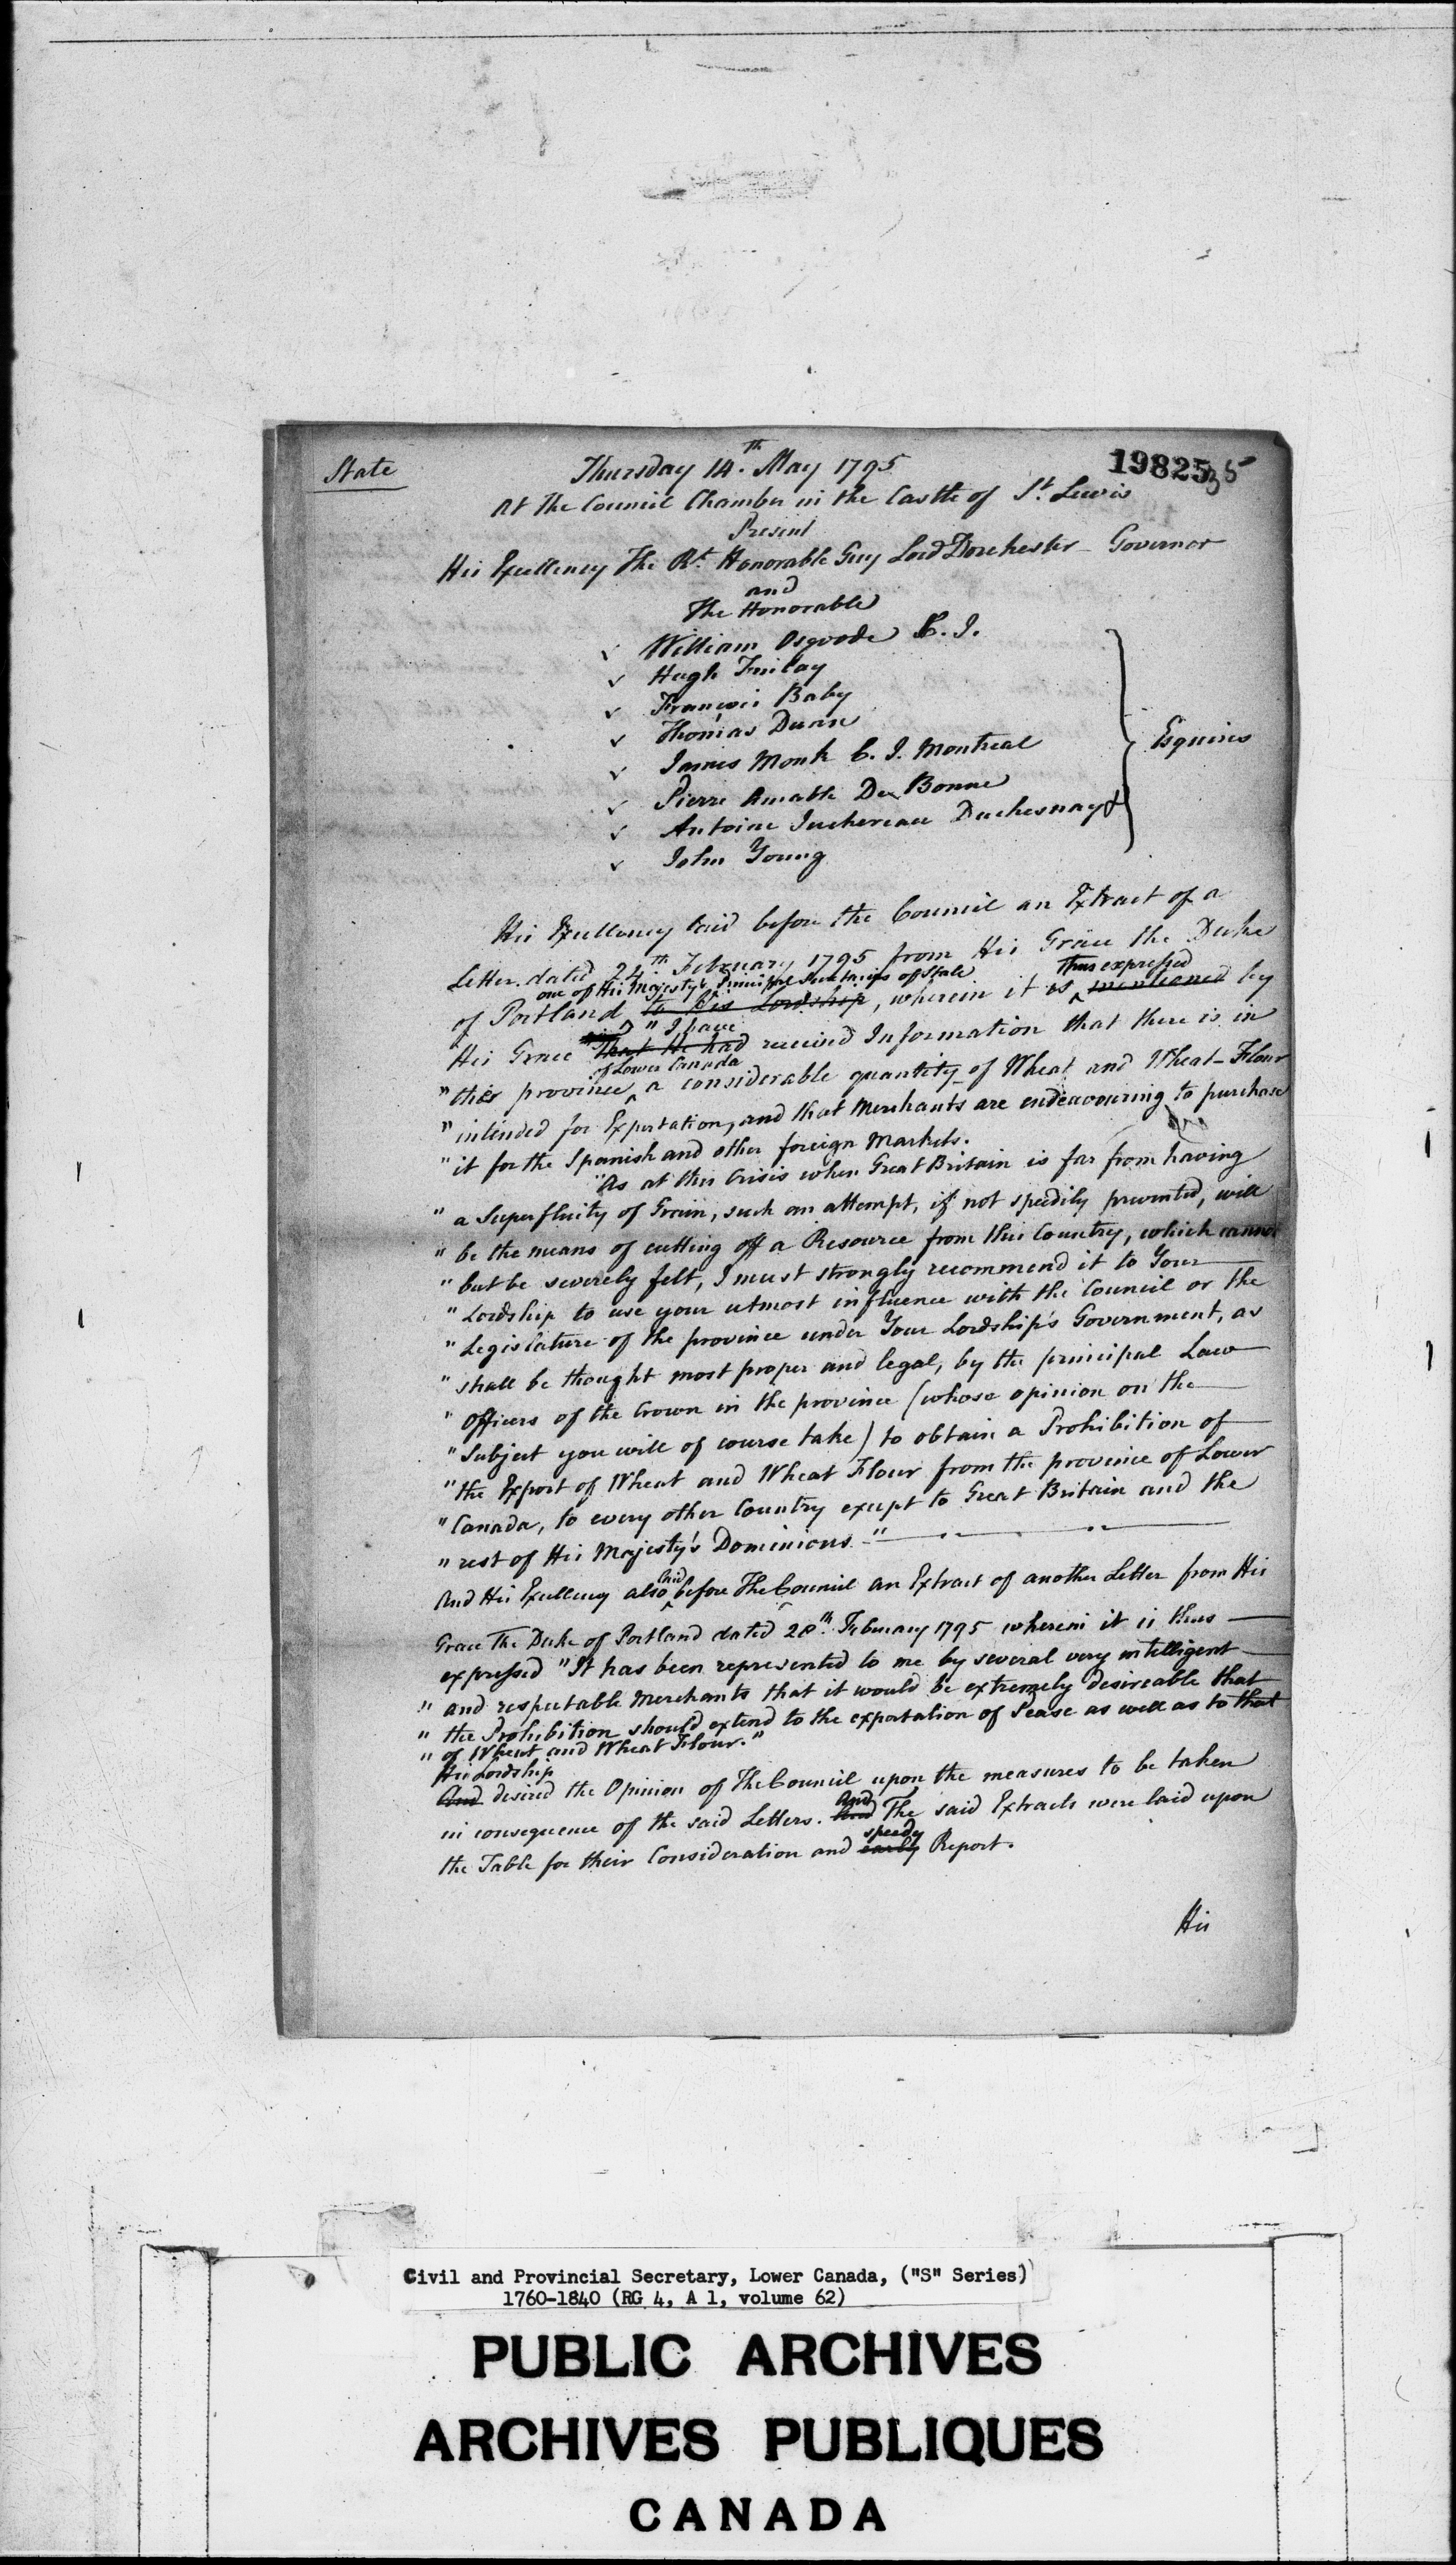 State
Thursday 14.th May 1795
19825
35
At the Council Chamber in the Castle of St. Lewis
Present
His Excellency The Rt. Honorable Guy Lord Dorchester Governor
and
The Honorable
William Osgoode C. J.
Hugh Finlay
François Baby
Thomas Dunn
James Monk C. J. Montreal
Pierre Amable De Bonne
Antoine Juchereau Duchesnay &
John Young
Esquires
His Excellency laid before the Council an Extract of a
Letter dated 24th February 1795 from His Grace the Duke
one of His Majesty's Principal Secretaries of State thus expressed
of Portland to His Lordship, wherein it is mentioned by
" I have
His Grace That He had received Information that there is in
of Lower Canada
" the province a considerable quantity of Wheat and Wheat-Flour
" intended for Exportation, and that Merchants are endeavouring to purchase
" it for the Spanish and other foreign Markets.
"As at this Crisis when Great Britain is far from having
" a Superfluity of Grain, such an attempt, if not speedily prevented, will
" be the means of cutting off a Resource from this Country, which cannot
" but be severely felt, I must strongly recommend it to Your
" Lordship to use your utmost influence with the Council or the
" Legislature of the province under Your Lordship's Government, as
" shall be thought most proper and legal, by the principal Law
" Officers of the Crown in the province (whose opinion on the
" Subject you will of course take) to obtain a Prohibition of
" the Export of Wheat and Wheat Flour from the province of Lower
" Canada, to every other Country except to Great Britain and the
" rest of His Majesty's Dominions."
laid
And His Excellency also before The Council an Extract of another Letter from His
Grace The Duke of Portland dated 28th. February 1795 wherein it is thus
expressed "It has been represented to me by several very intelligent
" and respectable Merchants that it would be extremely desireable that
" the Prohibition should extend to the exportation of Pease as well as to that
" of Wheat and Wheat Flour."
His Lordship
And desired the Opinion of The Council upon the measures to be taken
And
in consequence of the said Letters. And The said Extracts were laid upon
speedy
the Table for their Consideration and early Report.
His
Civil and Provincial Secretary, Lower Canada, ("S" Series)
1760-1840 (RG 4, A 1, volume 62)
PUBLIC ARCHIVES
ARCHIVES PUBLIQUES
CANADA